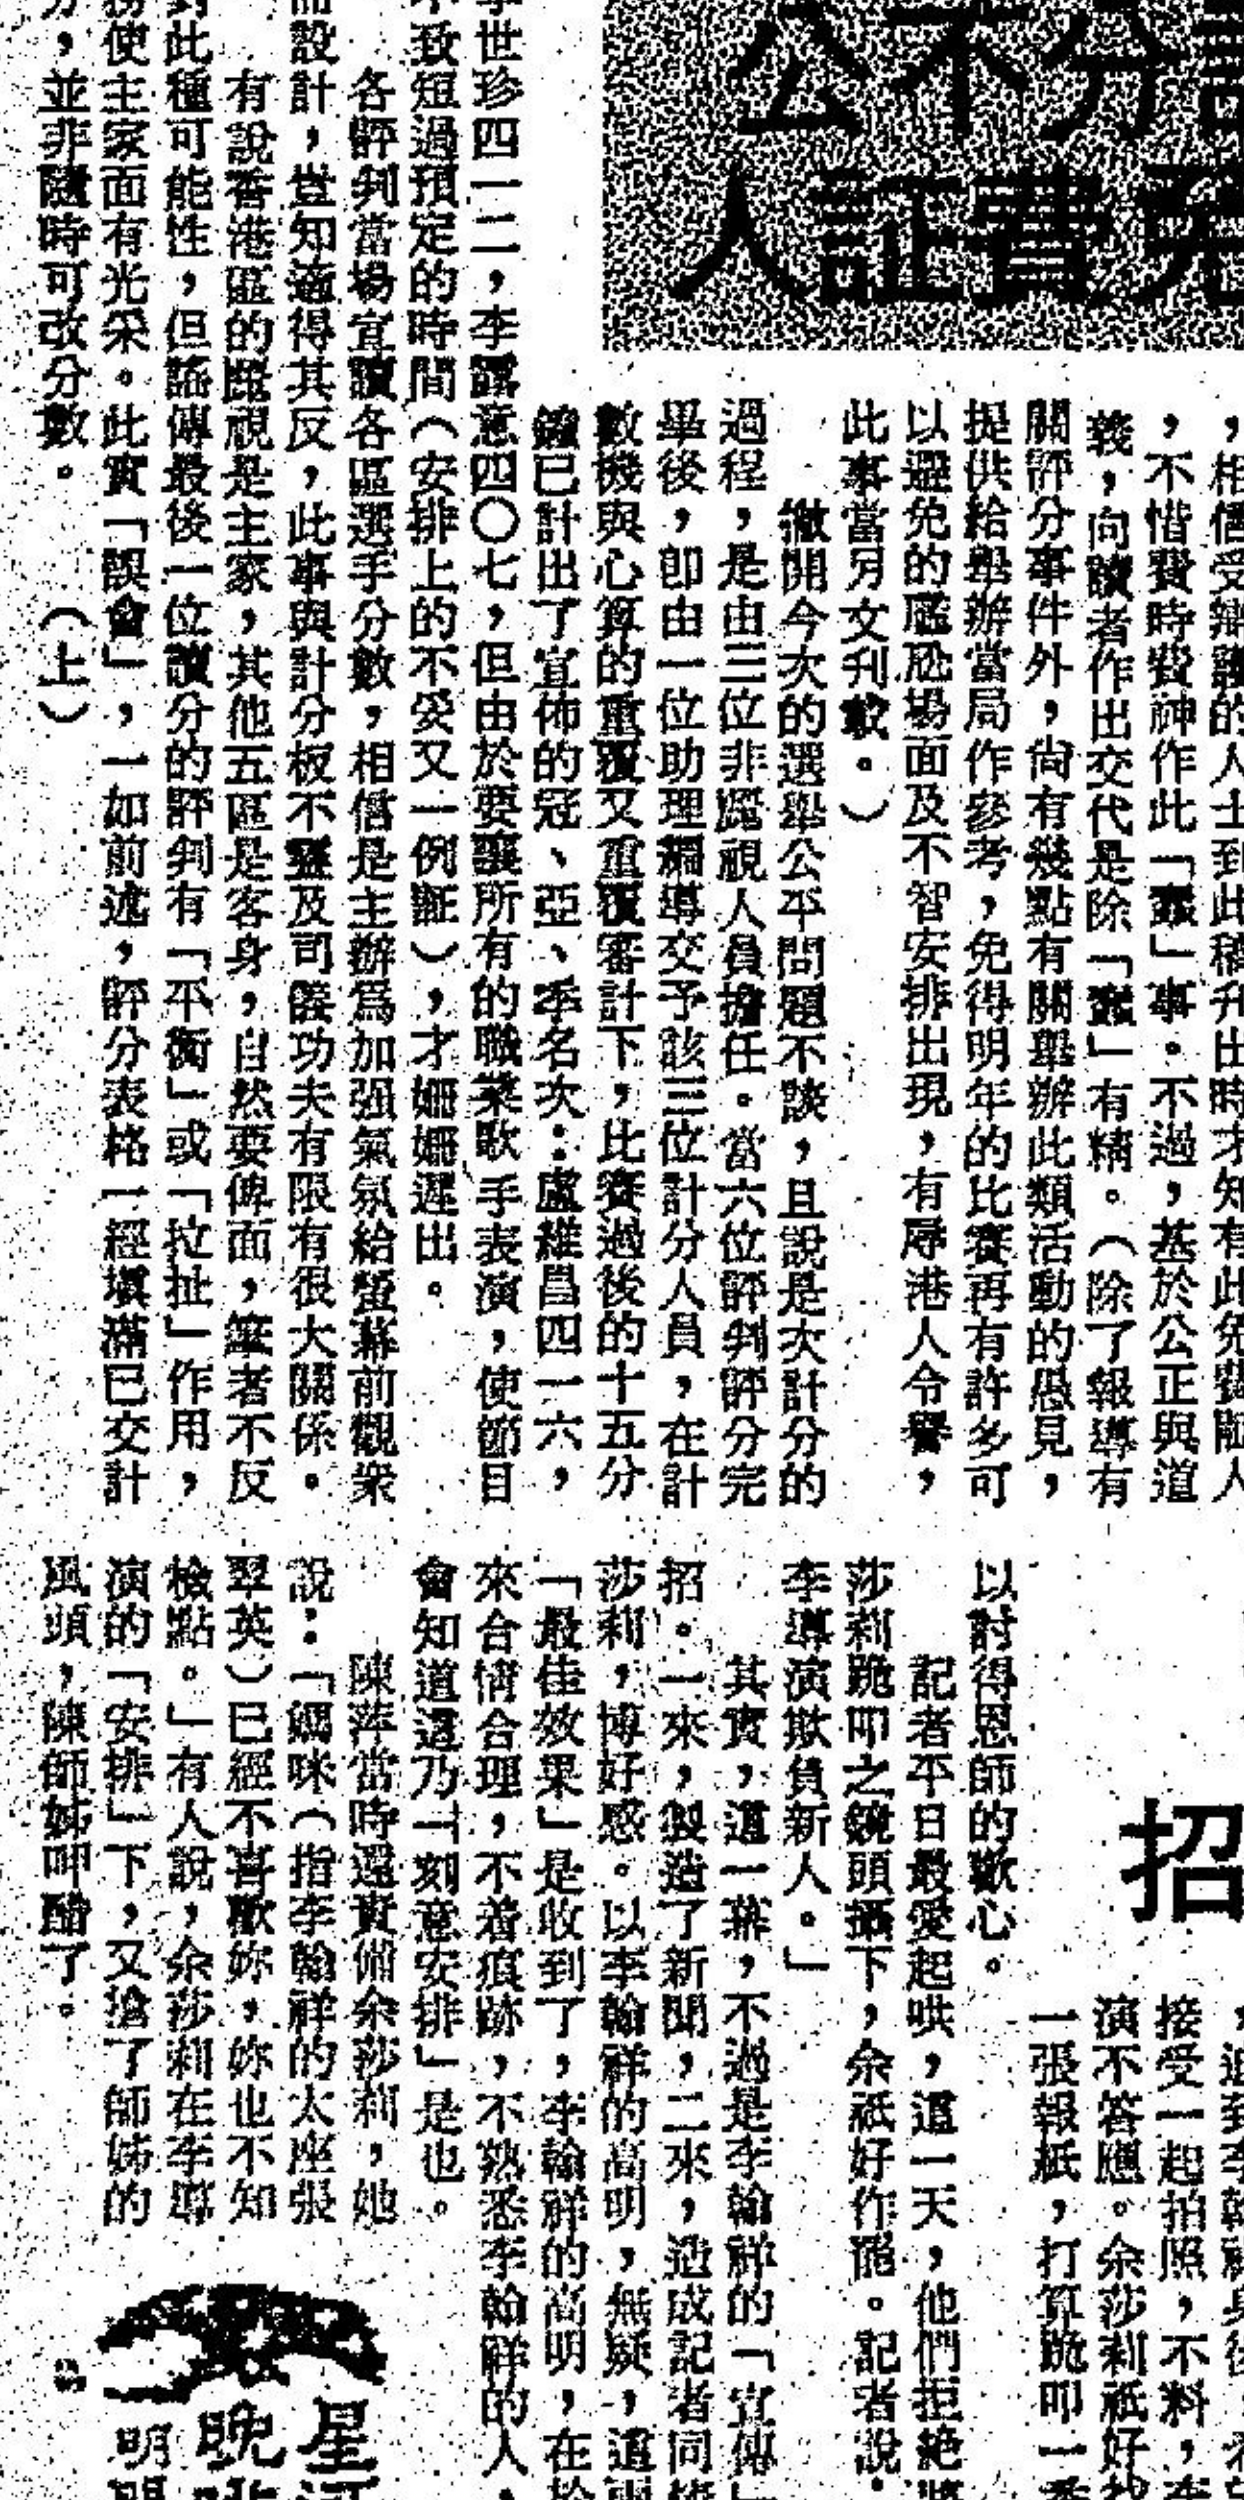 分不公
費証人
，不惜費時費神作此「蠢」事。不過，基於公正與道
義，向讀者作出交代是除「蠢」有精。（除了報導有
關評分事件外，尚有幾點有關舉辦此類活動的愚見，
提供給舉辦當局作參考，免得明年的比賽再有許多可
以避免的尷尬場面及不智安排出現，有辱港人令譽，
此事當另文刊載。）
撇開今次的選舉公平問題不談，且說是次計分的
過程，是由三位非麗視人員擔任。當六位評判評分完
畢後，即由一位助理編導交予該三位計分人員，在計
數機與心算的重覆又重覆審計下，比賽過後的十五分
鐘已計出了宣佈的冠、亞、季名次：盧維昌四一六，
李世珍四一二，李露意四〇七，但由於要讓所有的職業歌手表演，使節目
不致短過預定的時間（安排上的不妥又一例証），才姍姍遲出。
各評判當場宣讀各區選手分數，相信是主辦爲加强氣氛給螢幕前觀衆
而設計，豈知適得其反，此事與計分板不靈及司儀功夫有限有很大關係。
有說香港區的麗視是主家，其他五區是客身，自然要俾面，筆者不反
對此種可能性，但謠傳最後一位讀分的評判有「平衡」或「拉扯」作用，
務使主家面有光采。此實「誤會」，一如前述，評分表格一經填滿已交計
分，並非隨時可改分數。（上）
招
接受一起拍照，不料，李
演不答應。余莎莉祇好找
一張報紙，打算跪叩一番
以討得恩師的歡心。
記者平日最愛起哄，這一天，他們拒絕將
莎莉跪叩之鏡頭攝下，余祇好作罷。記者說：
李導演欺負新人。」
其實，這一幕，不過是李翰祥的「宣傳」
招。一來，製造了新聞，二來，造成記者同
莎莉，博好感。以李翰祥的高明，無疑，這
「最佳效果」是收到了，李翰祥的高明，在於
來合情合理，不着痕跡，不熟悉李翰祥的人，
會知道這乃「刻意安排」是也。
陳萍當時還責備余莎莉，她
說：「媽咪（指李翰祥的太座張
翠英）已經不喜歡妳，妳也不知
檢點。」有人說，余莎莉在李導
演的「安排」下，又搶了師姊的
風頭，陳師姊呷醋了。
星
晚
明